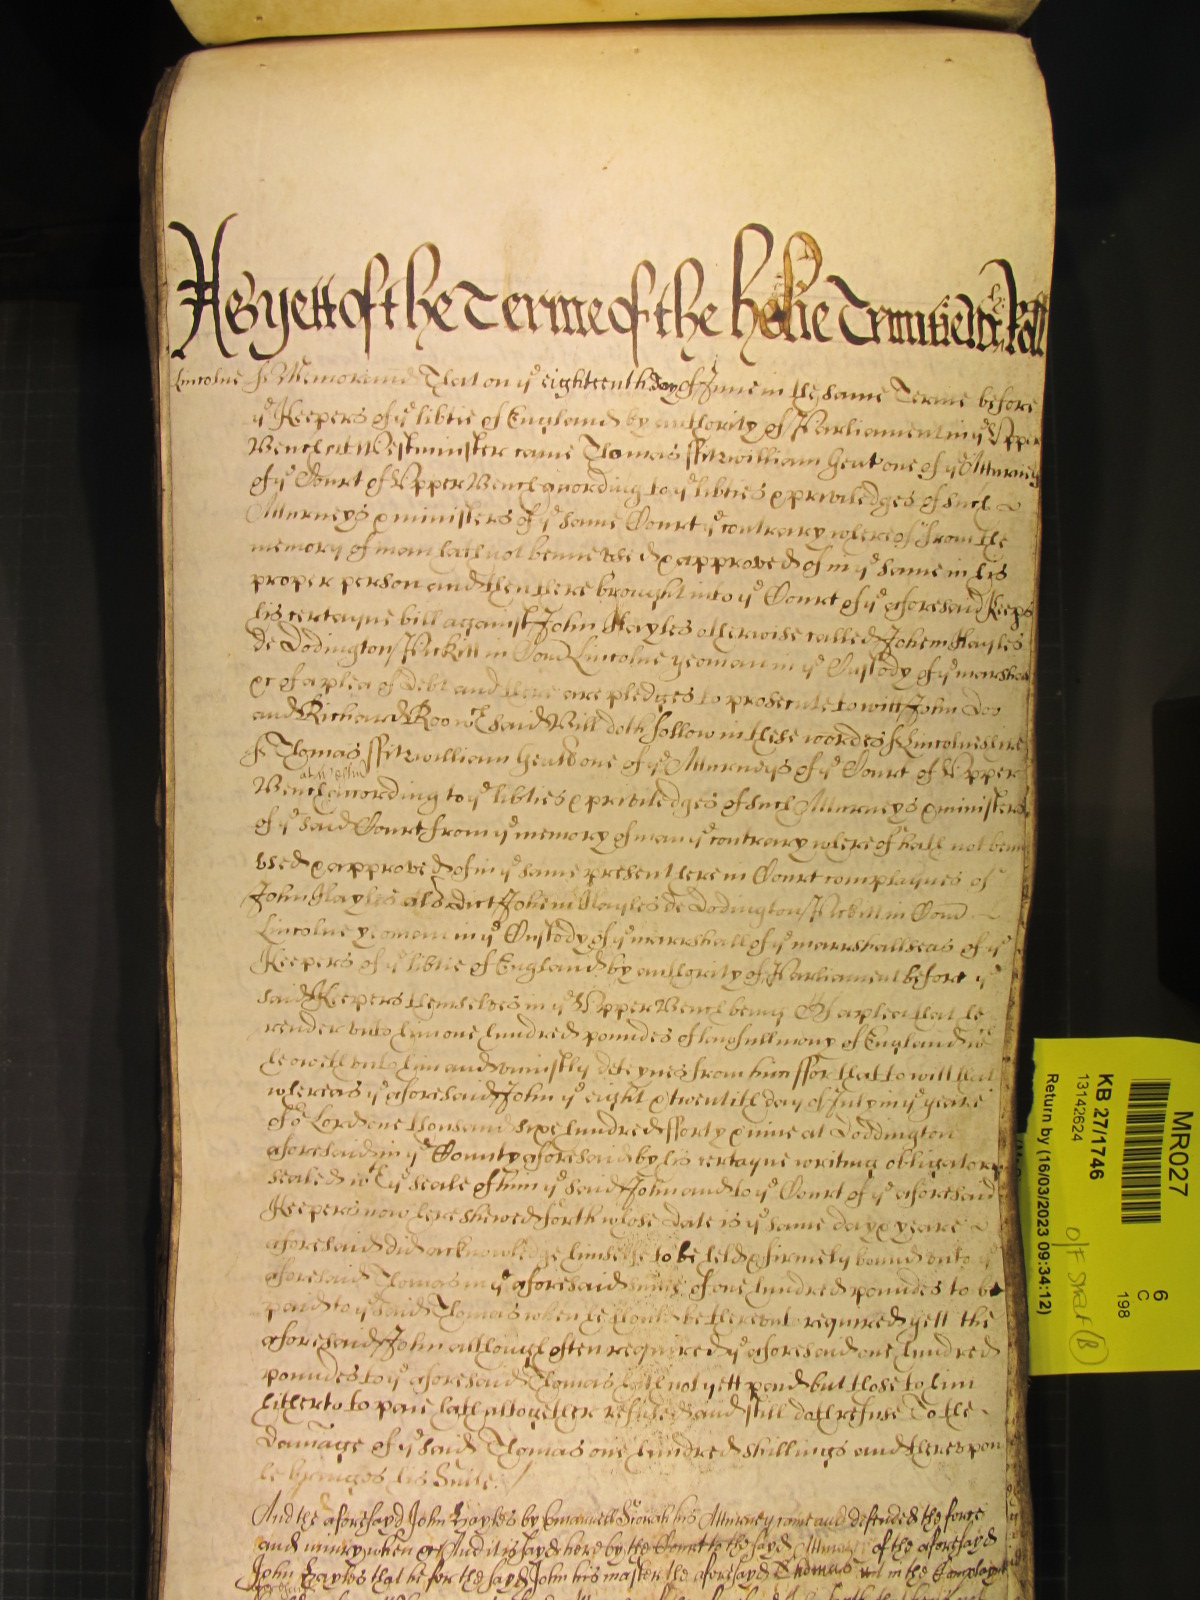 As yett of the Terme of the holie Trinitie
Lincolne ss Memorand That on ye eighteenth day of June in the same Terme before
ye Keepers of ye libtie of England by authority of Parliament in ye Upper
Bench att Westminster came Thomas ffitzwilliam Gent one of ye Atturneys
of ye Court of Upper Bench according to ye libties & priviledges of such
Atturneys & ministers of ye same Court ye contrary whereof from the
memory of man hath not beene used & approved of in ye same in his
proper person and then there brought into ye Court of ye aforesaid Keeps
his certayne bill against John Hayles otherwise called Johem Hayles
de Dodington Pickill in Com Lincolne yeoman in ye Custody of ye marshall
&c of a plea of debt and there are pledges to prosecute to witt John Doo
and Richard Roo wch said Bill doth follow in these wordes ss Lincolneshire
ss Thomas ffitzwilliam Gent one of ye Atturneys of ye Court of Upper
Bench according to ye libties & priviledges of such Atturneys & ministers
of ye said Court from ye memory of man ye contrary whereof hath not been
used & approved of in ye same present here in Court complaynes of
John Hayles als dict Johem Hayles de Dodington Pickill in Com
Lincolne yeoman in ye Custody of ye marshall of ye marshallseas of ye
Keepers of ye libtie of England by authority of Parliament before ye
said Keepers themselves in ye Upper Bench being Of a plea that he
render unto him one hundred poundes of lawfull mony of England wch
he oweth unto him and uniustly deteynes from him ffor that to witt that
whereas ye aforesaid John ye eight & twentith day of July in ye yeare
of or Lord one thousand sixe hundred fforty & nine at Doddington
aforesaid in ye County aforesaid by his certayne writing obligatory
sealed wth ye seale of him ye said John and to ye Court of ye aforesaid
Keepers now here shewed forth whose date is ye same day & yeare
aforesaid did acknowledge himselfe to be held & firmely bound unto ye
aforesaid Thomas in ye aforesaid summe of one hundred poundes to be
paid to ye said Thomas when he should be thereunto required yett the
aforesaid John although often required ye aforesaid one hundred
poundes to ye aforesaid Thomas hath not yett paid but those to him
hitherto to paie hath altogether refused and still doth refuse To the
damage of ye said Thomas one hundred shillings and thereupon
he bringes his Suite.
And the aforesayd John Hayles by his Atturney came and defended the force
and iniury when &c And it is sayd here by the Court to the sayd Atturney of the aforesayd
John Hayles that he for the sayd John his master the aforesayd Thomas in the Complaynt
MR027
KB 27/1746
13142624
Return by (16/03/2023 09:34:12)
6
C
198